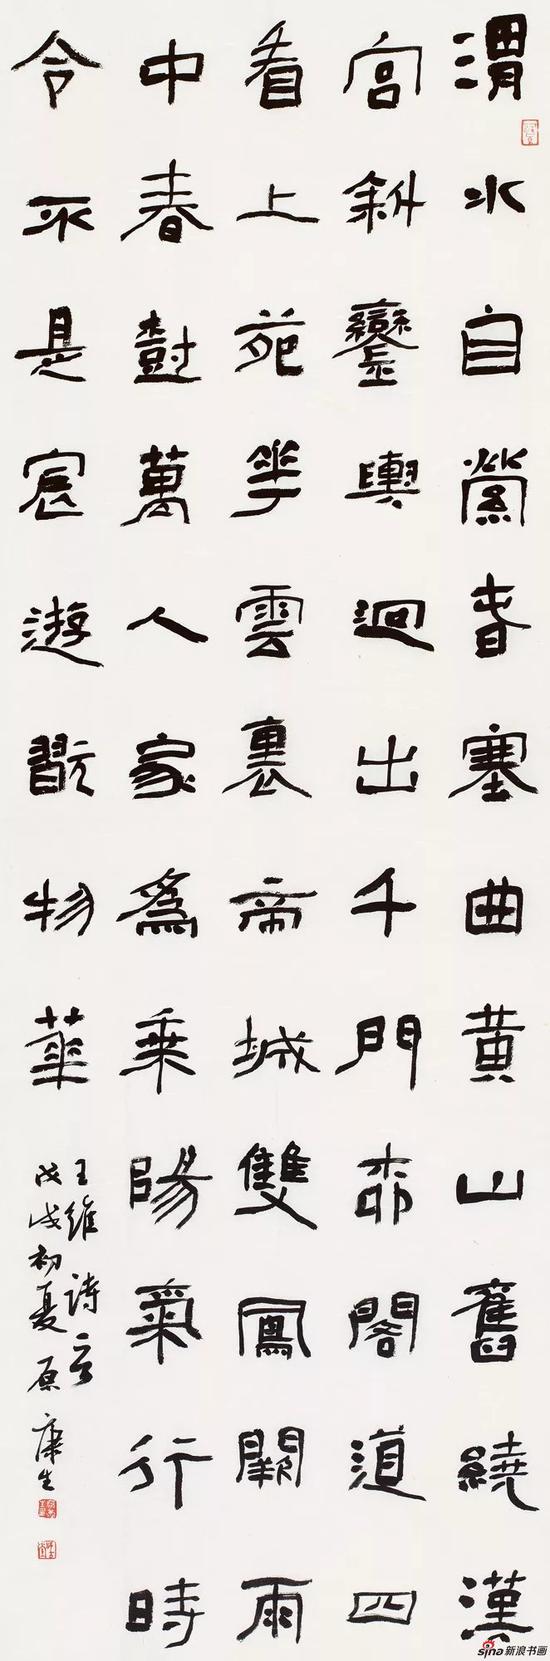 渭水自縈塞曲黄山舊繞漢
宫斜鑾輿迴出千門桺閣道四
看上苑花雲裏帝城雙鳳闕雨
中春樹萬人家為乘陽氣行時
令不是宸遊翫物華
王維詩一首
戊戌初夏 原康生
sina新浪书画